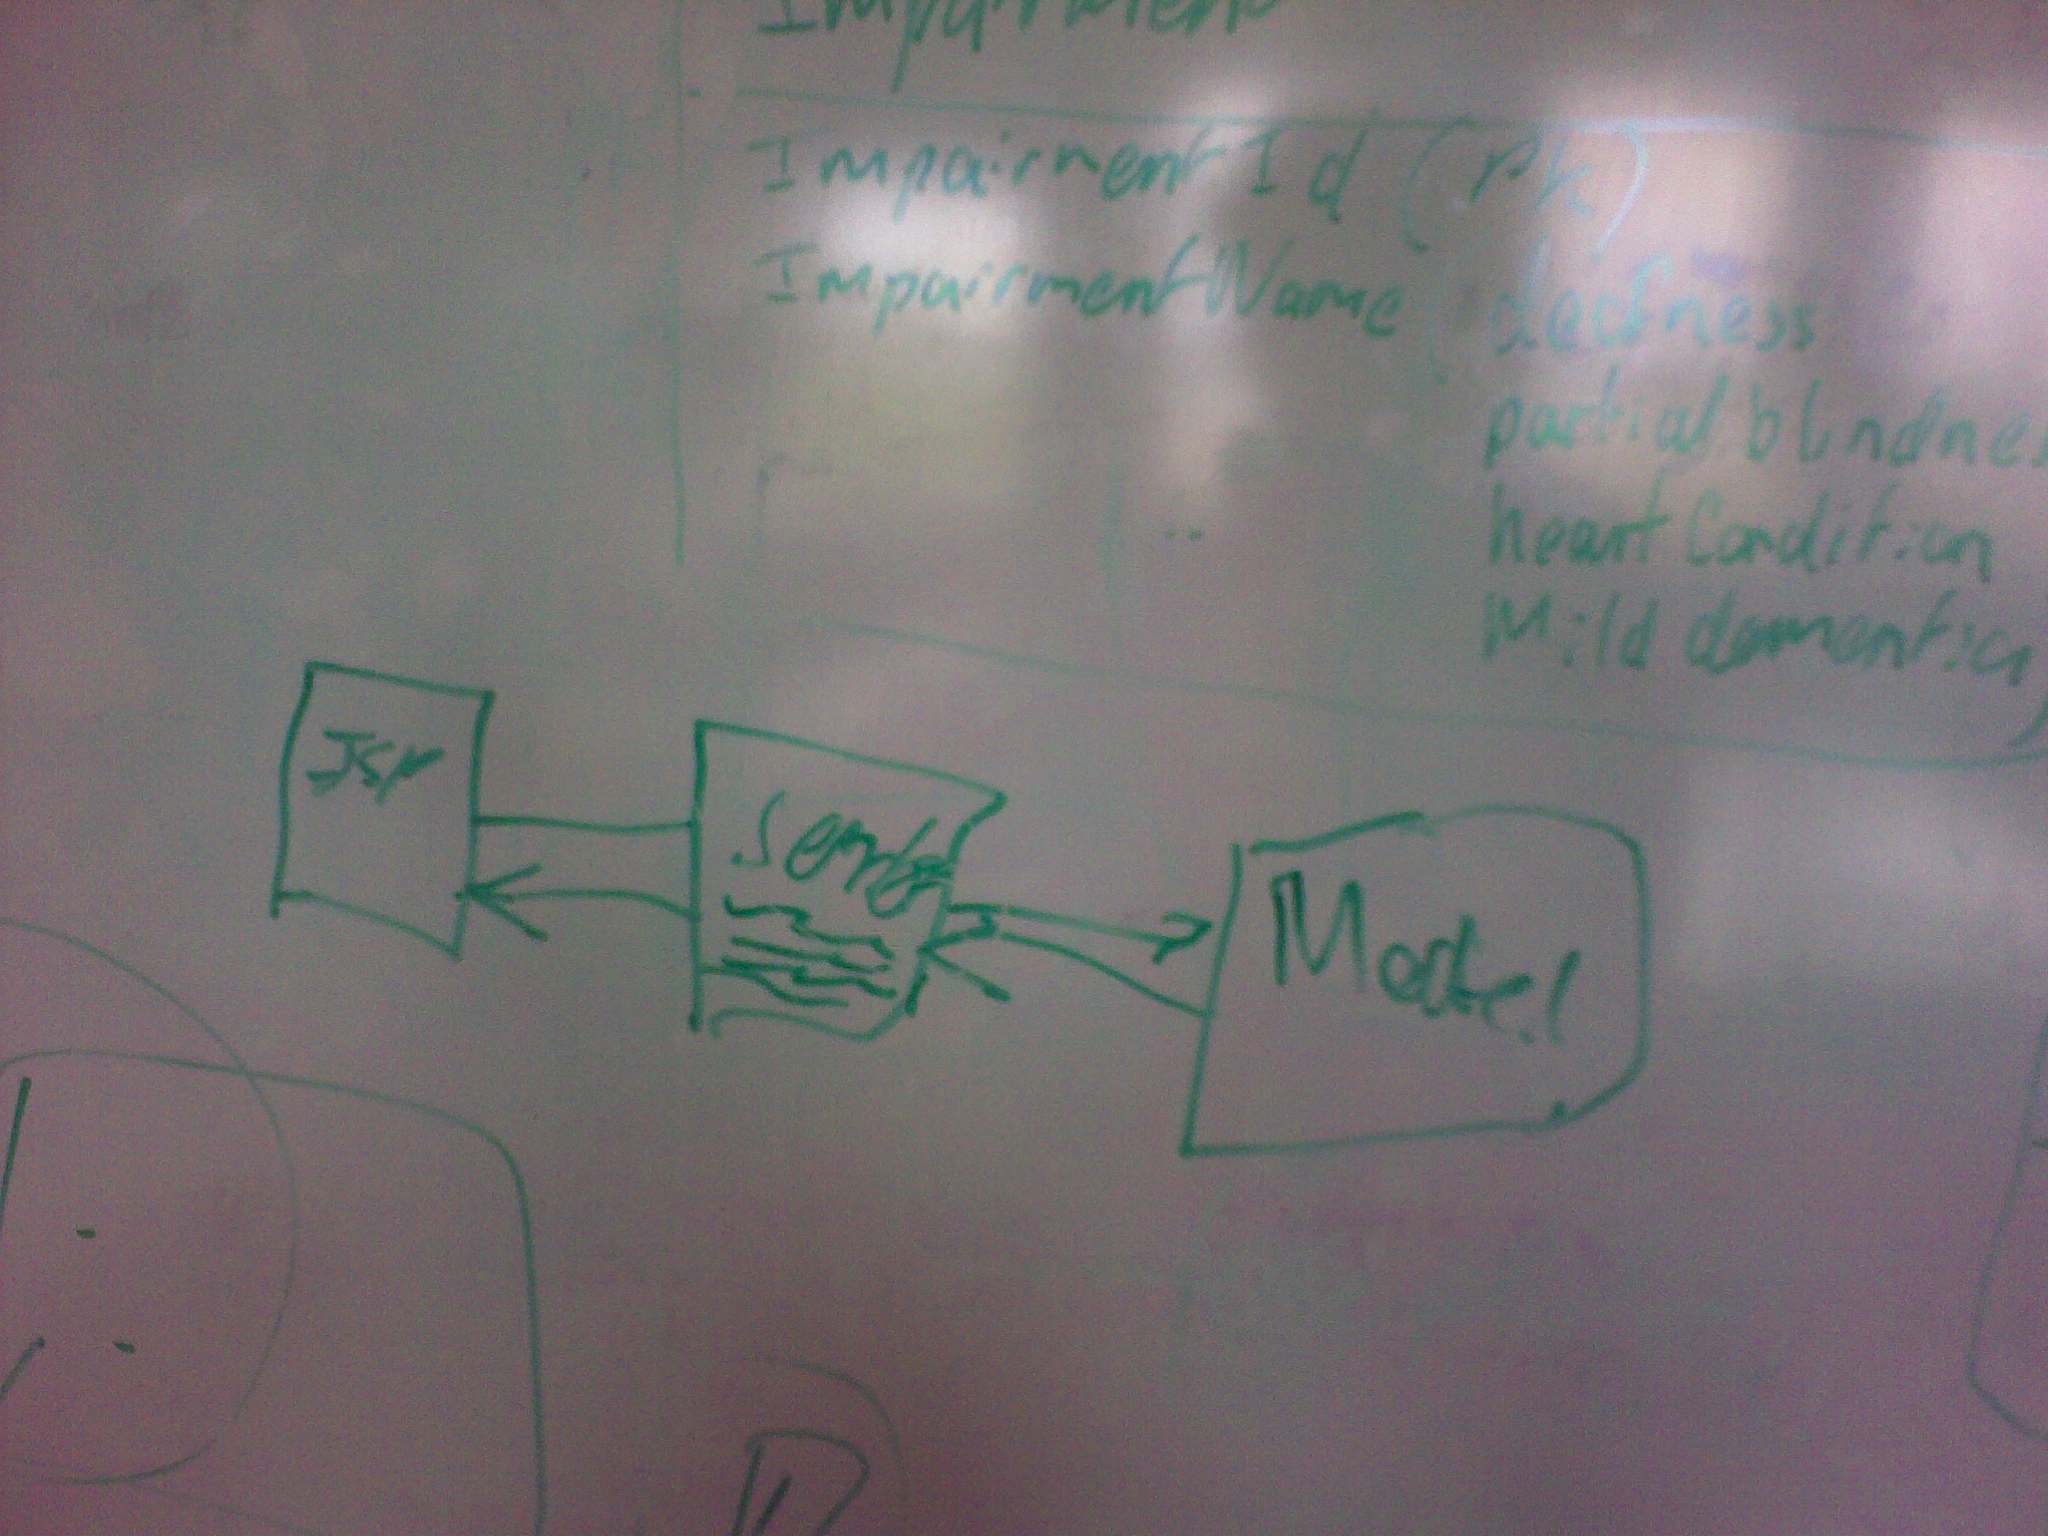 Impairment
ImpairmentId (Pk)
ImpairmentName (deafness
partial blindnes
heart Condition
Mild dementia)
JSP
Servlet
Model